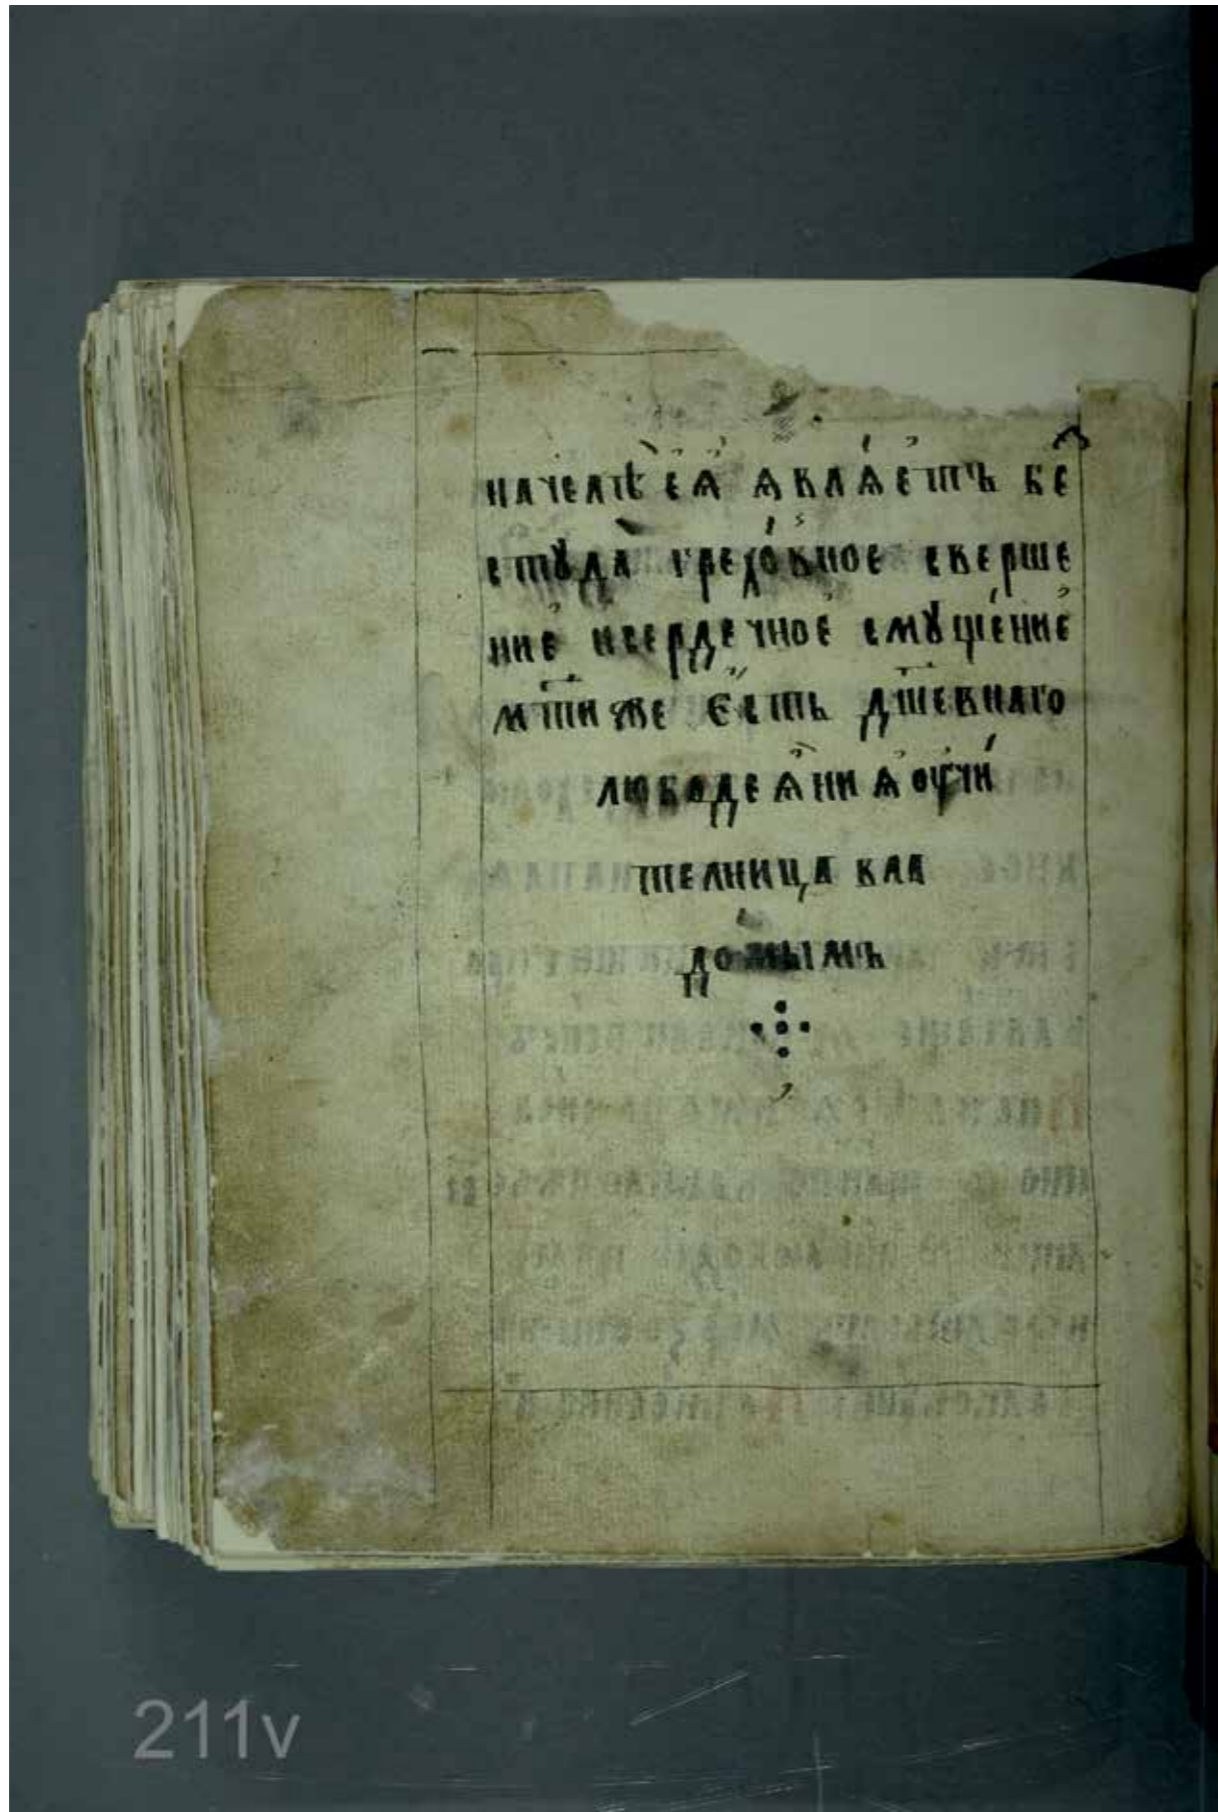 на челѣ еѧ ѧвлѧетъ бе
стꙋда греховное сверше
ние исердечное смꙋщение
мт҃и же есть дш҃евнаго
любодеѧниѧ оучи
телница бла
домымъ
211v